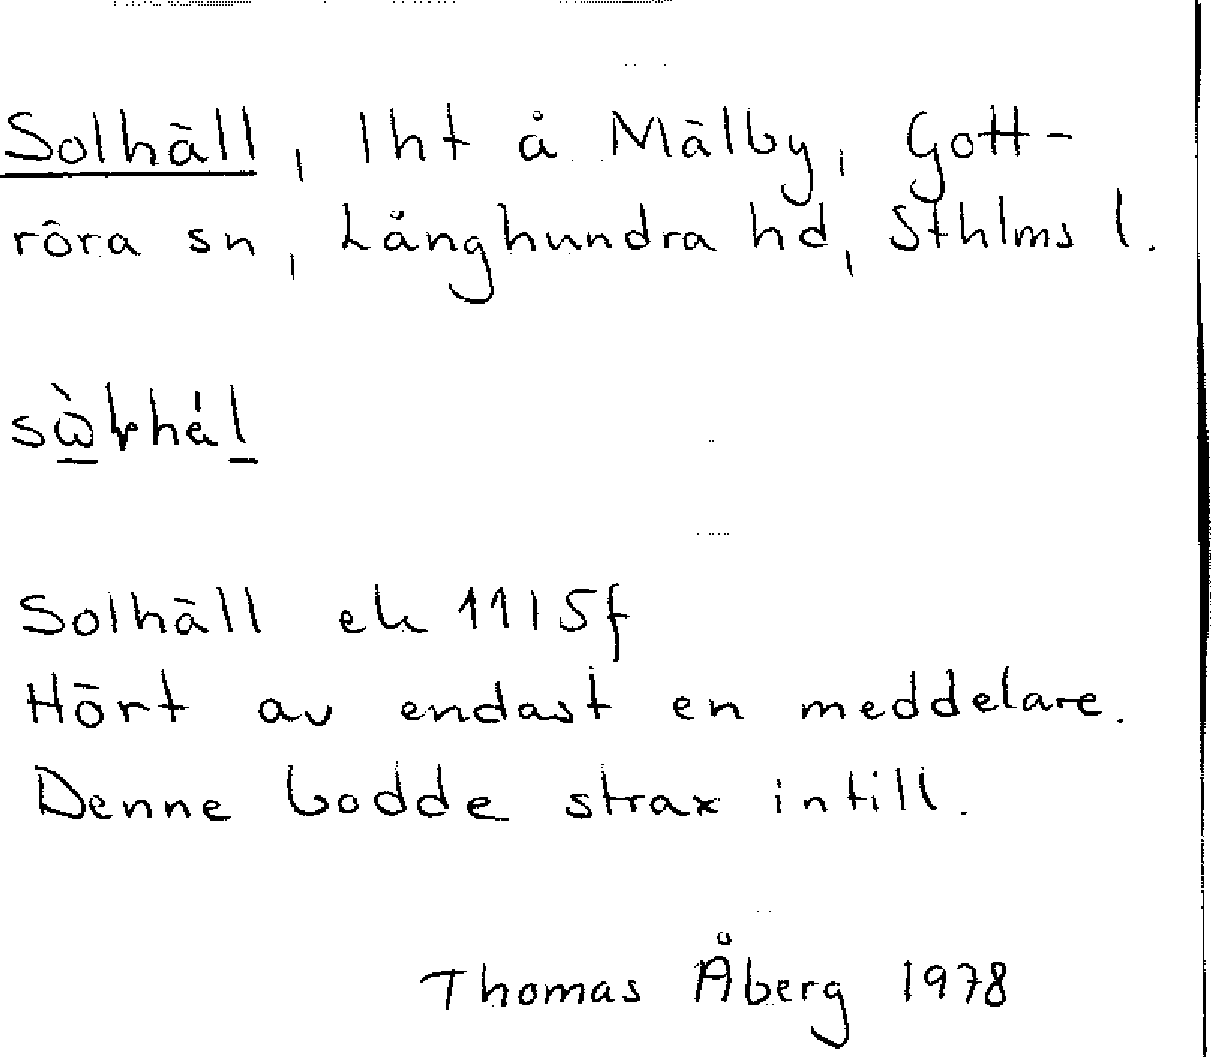 Solhäll, lht å Mälby, Gott-
röra sn, Långhundra hd, Sthlms l.
Solhäll ek 11I5f
Hört av endast en meddelare.
Denne bodde strax intill.
Thomas Åberg 1978